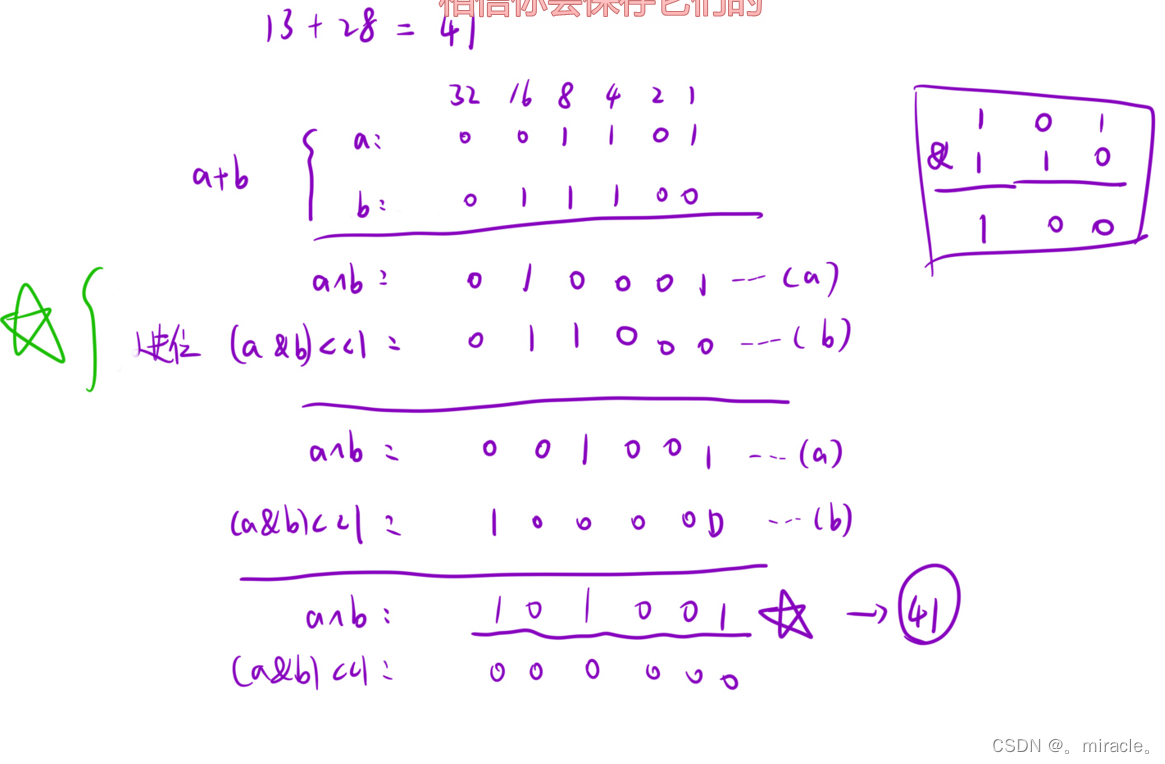 相信你会保存它们的
13 + 28 = 41
32 16 8 4 2 1
a: 0 0 1 1 0 1
a+b
b: 0 1 1 1 0 0
1 0 1
& 1 1 0
1 0 0
a^b: 0 1 0 0 0 1 --- (a)
进位 (a&b)<<1: 0 1 1 0 0 0 --- (b)
a^b: 0 0 1 0 0 1 --- (a)
(a&b)<<1: 1 0 0 0 0 0 --- (b)
a^b: 1 0 1 0 0 1 ☆ → 41
(a&b)<<1: 0 0 0 0 0 0
CSDN @。miracle。